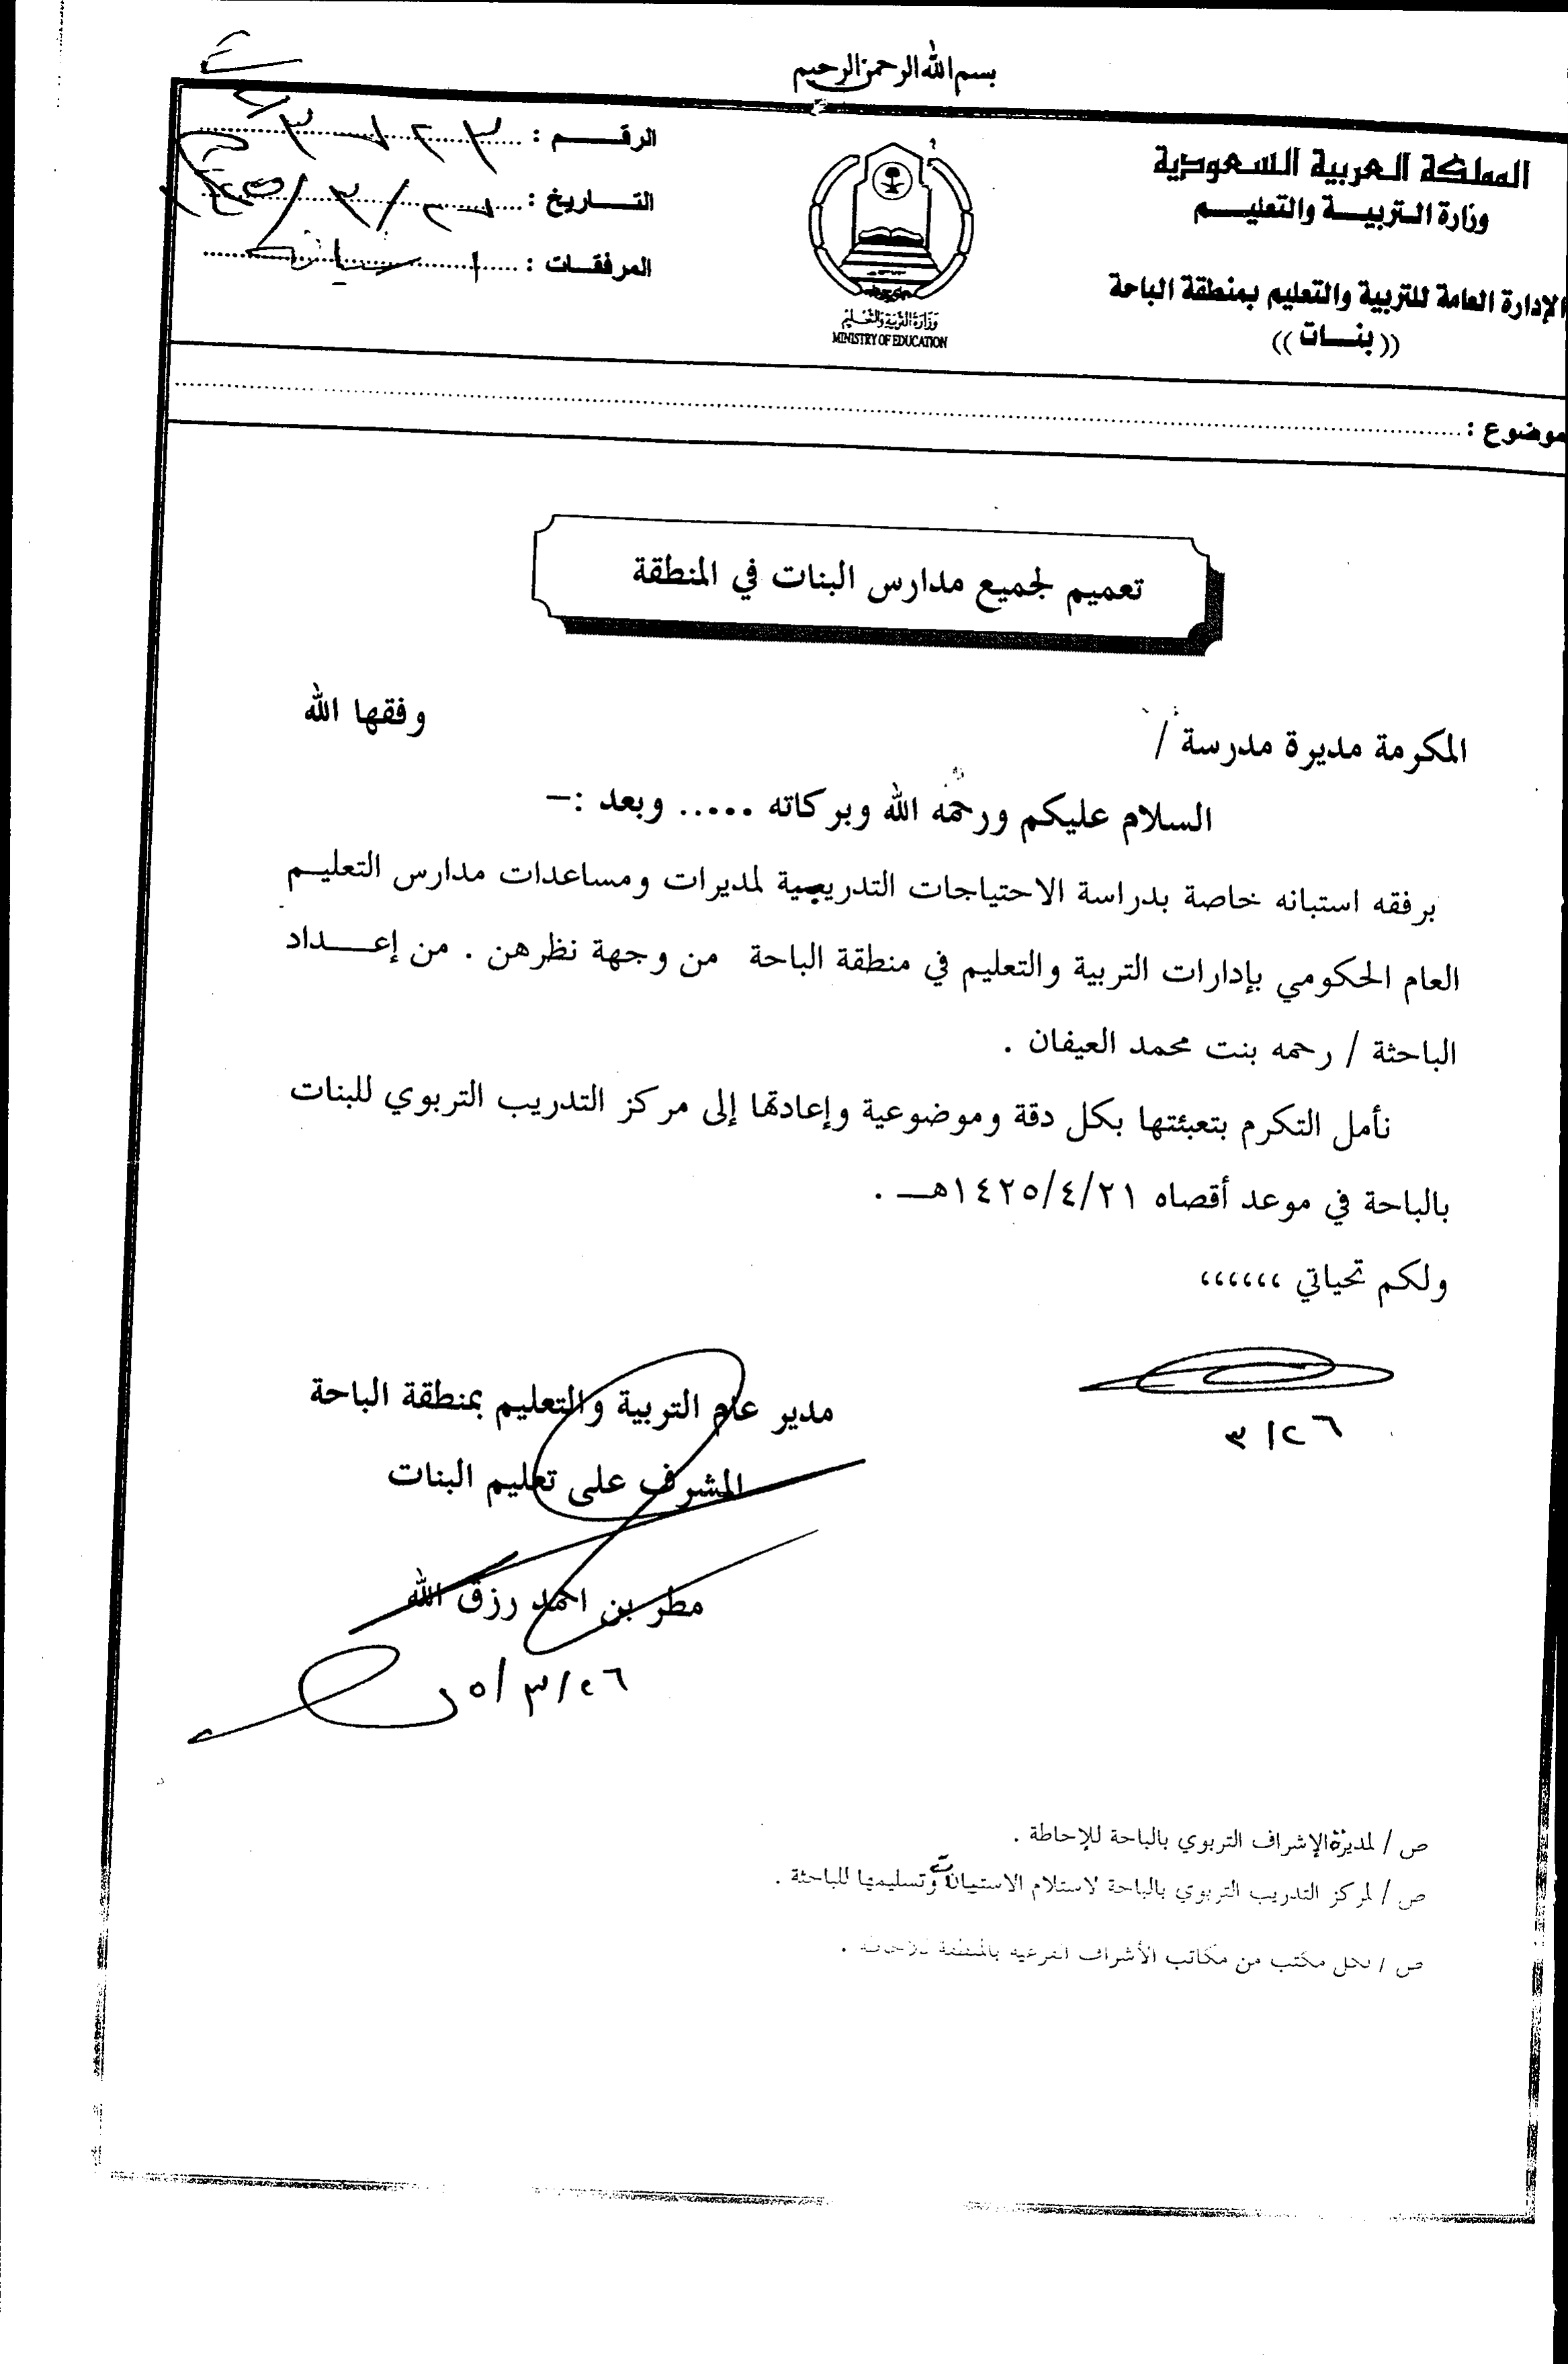 بسم الله الرحمن الرحيم
المملكة العربية السعودية
وزارة التربيـــة والتعليـــم
الإدارة العامة للتربية والتعليم بمنطقة الباحة
((بنـــات))
وزارة التربية والتعليم
MINISTRY OF EDUCATION
الرقـــم :
التـــاريخ :
المرفقـــات :
موضوع :
تعميم لجميع مدارس البنات في المنطقة
المكرمة مديرة مدرسة / وفقها الله
السلام عليكم ورحمه الله وبركاته ..... وبعد :–
برفقه استبانه خاصة بدراسة الاحتياجات التدريبية لمديرات ومساعدات مدارس التعليـم
العام الحكومي بإدارات التربية والتعليم في منطقة الباحة من وجهة نظرهن . من إعـــداد
الباحثة / رحمه بنت محمد العيفان .
نأمل التكرم بتعبئتها بكل دقة وموضوعية وإعادتها إلى مركز التدريب التربوي للبنات
بالباحة في موعد أقصاه ١٤٢٥/٤/٢١هـــ .
ولكم تحياتي ،،،،،،
٣/٢٦
مدير عام التربية والتعليم بمنطقة الباحة
المشرف على تعليم البنات
مطر بن احمد رزق الله
٢٦/٣/٥
ص / لمديرة الإشراف التربوي بالباحة للإحاطة .
ص / لمركز التدريب التربوي بالباحة لاستلام الاستبيانات وتسليمها للباحثة .
ص / لكل مكتب من مكاتب الأشراف الفرعية بالمنطقة للإحاطة .